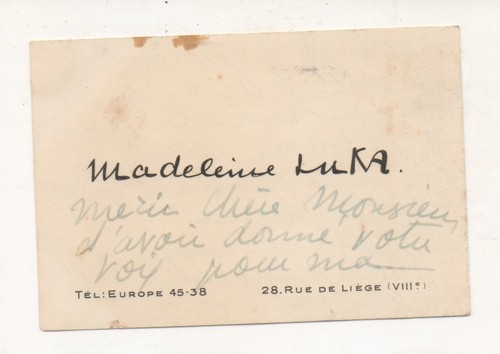 Madeleine Luka.
Merci Chère Monsieur,
d'avoir donné votre
voix pour ma
TÉL: EUROPE 45-38 28, RUE DE LIÈGE (VIIIe)